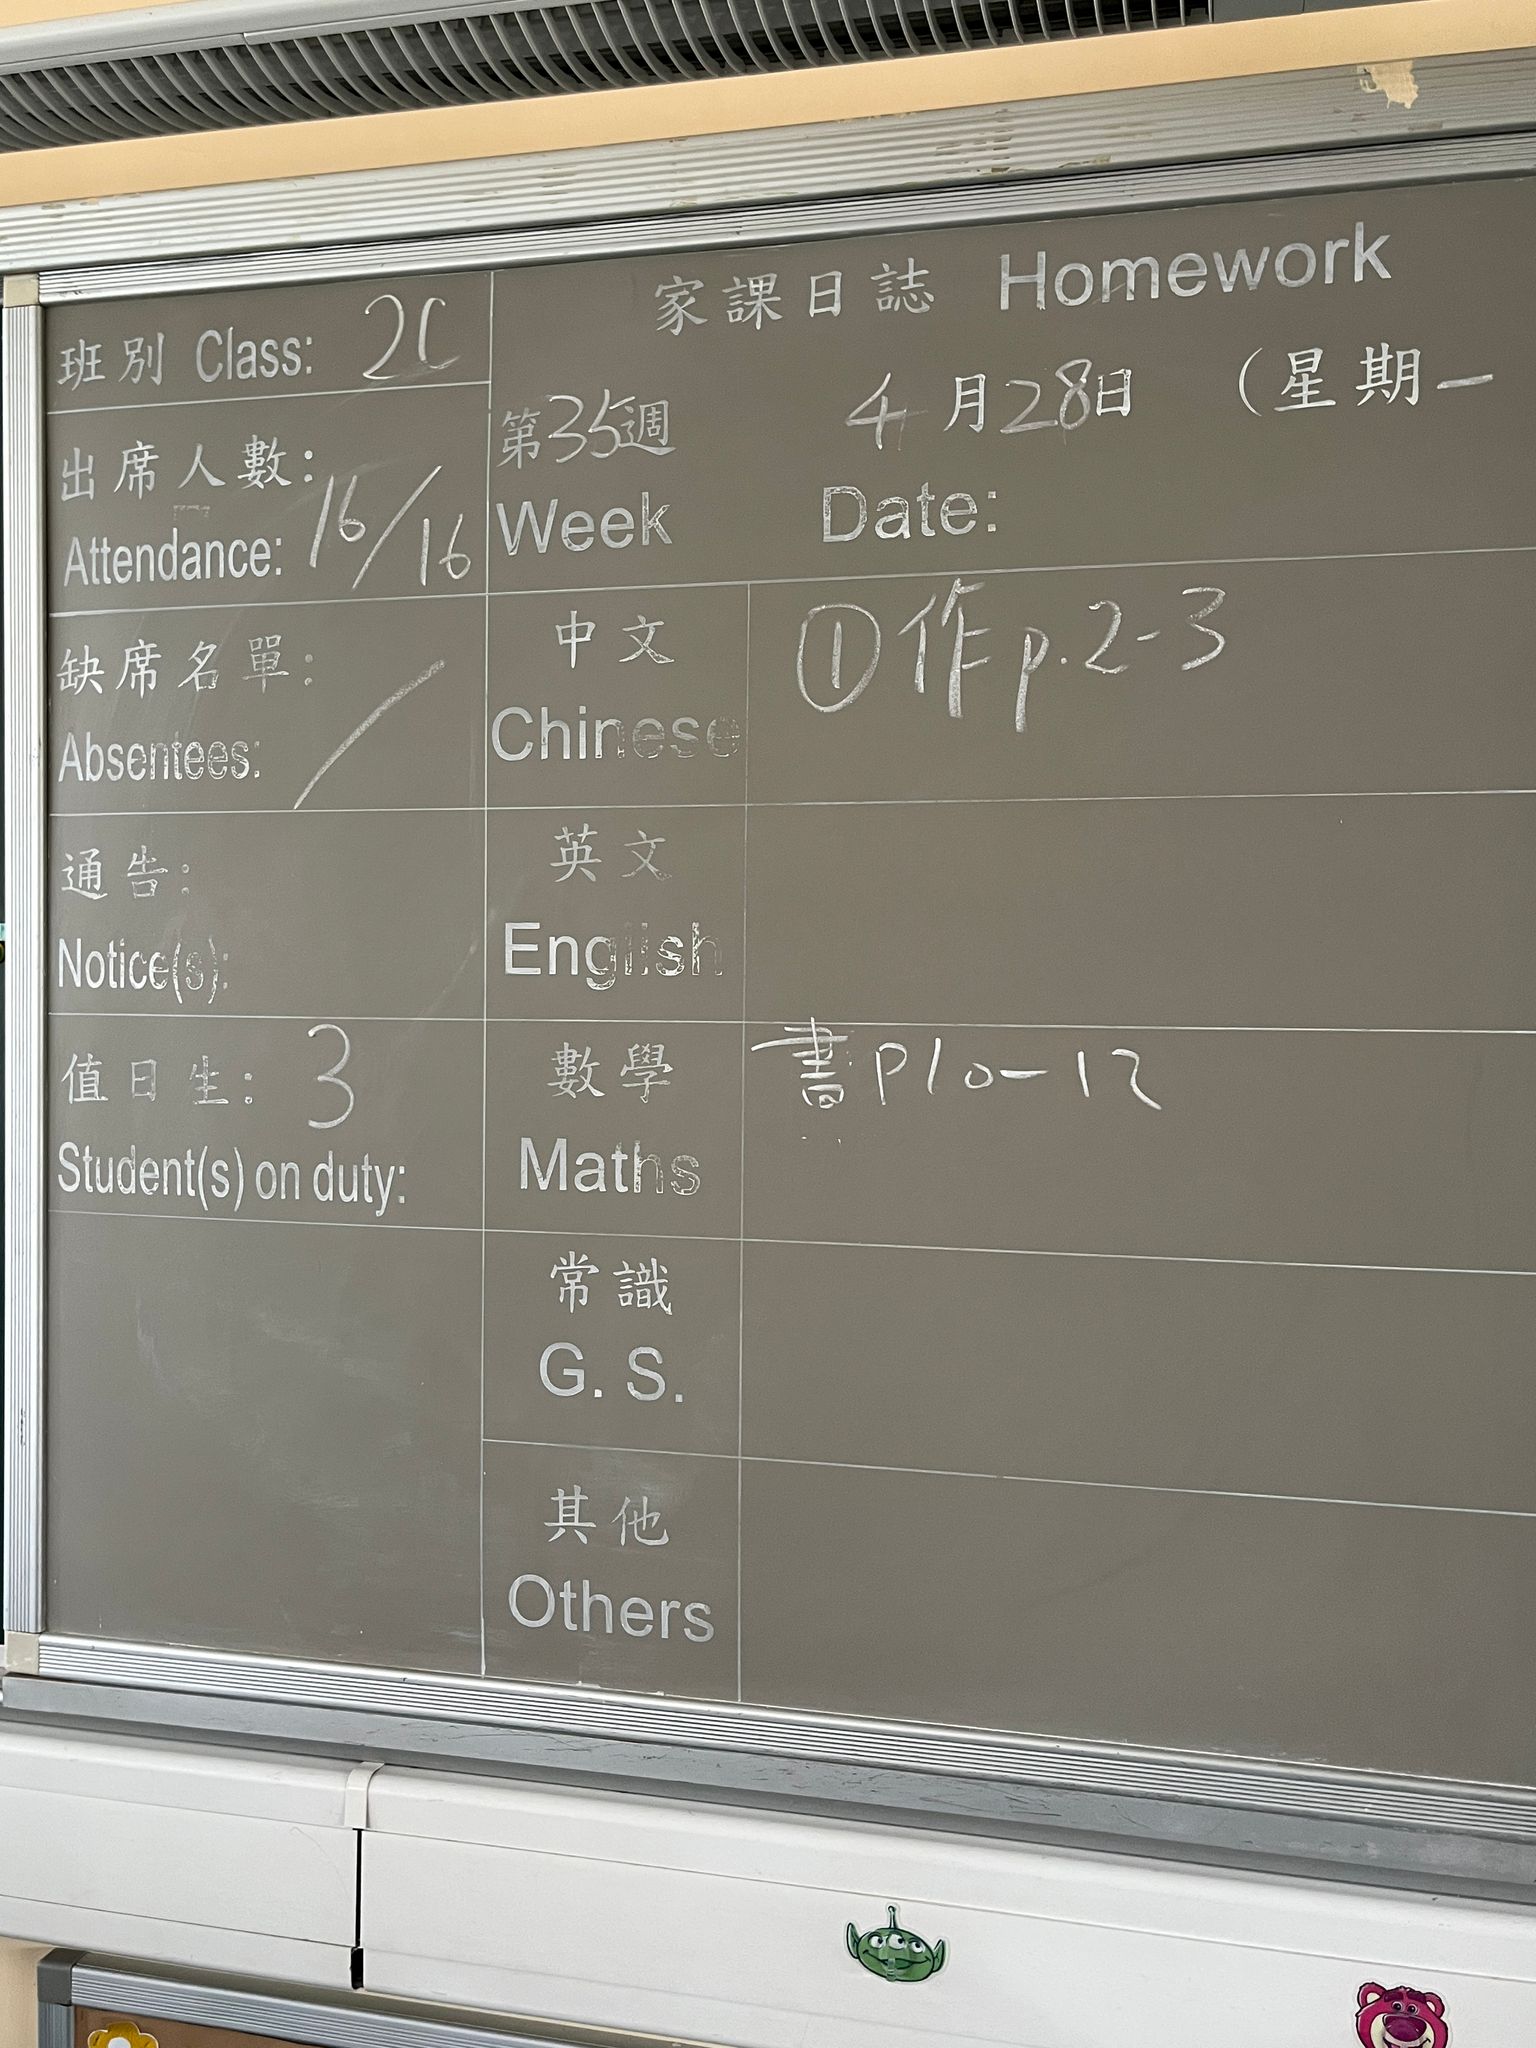 家課日誌 Homework
班別 Class: 2C
出席人數:
Attendance: 16/16
缺席名單:
Absentees: /
通告:
Notice(s):
值日生: 3
Student(s) on duty:
第35週 4月28日 (星期一
Week Date:
中文 ①作p.2-3
Chinese
英文
English
數學 書P10-12
Maths
常識
G. S.
其他
Others